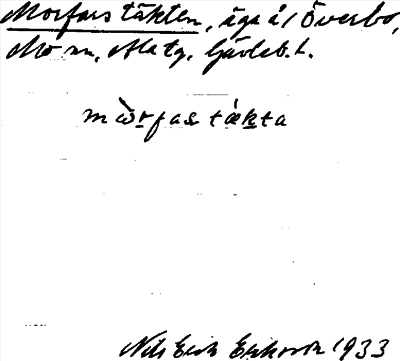 Morfars täkten, äga å 1 Överbo,
Mo sn, Ala tg. Gävleb. l.
mòrfas tǽkta
Nils Erik Eriksson 1933